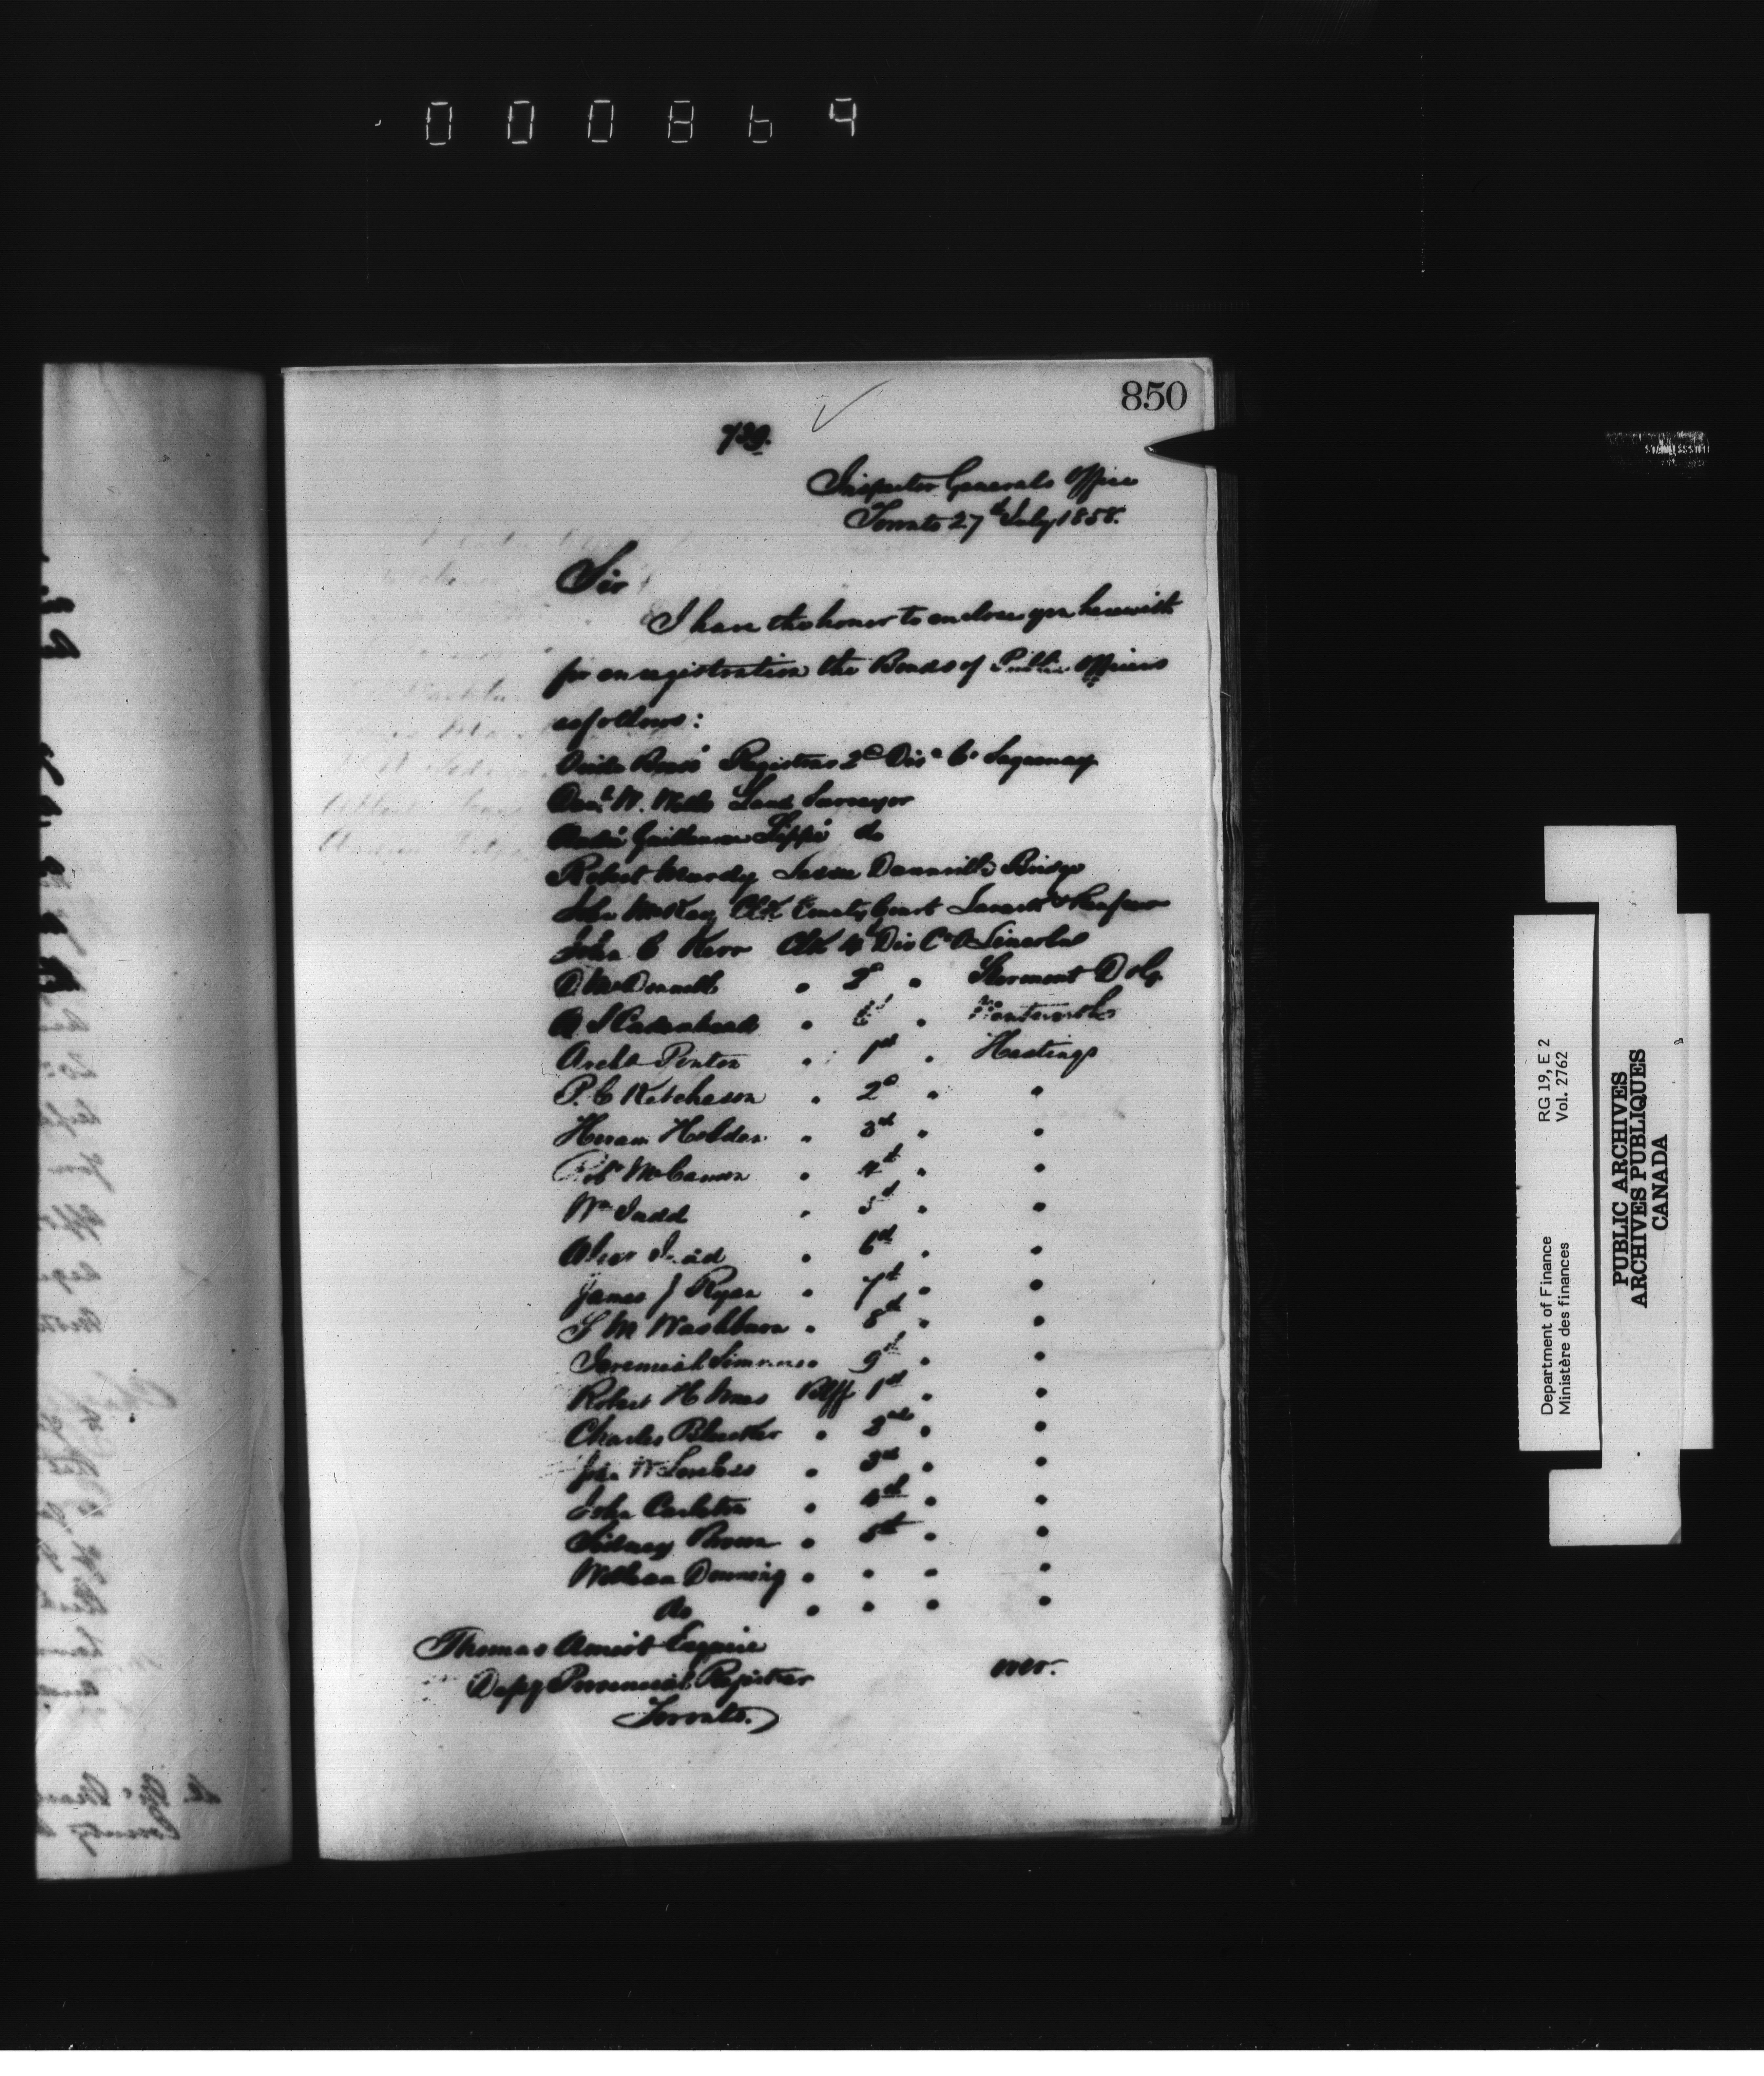 000869
850
739.
Inspector Generals Office
Toronto 27th July 1858.
Sir
I have the honor to enclose you herewith
for enregistration the Bonds of Public Officers
as follows:
Registrar 2d Dis Co Saguenay
Danl W. Wells Land Surveyor
Guillaume Lippé do
Robert Mardy Lessee Dunnville Bridge
John McKay Clk County Court Lanark & Renfrew
John C Kerr Clk 4 Dis Ct Lincoln
D McDonell " 2d " Stormont D & G
Cadenhead " " Wentworth
Archd Ponton " 1st " Hastings
P. C Ketcheson " 2d " "
Hiram Holden " 3rd " "
Robt McCammon " 4th " "
Wm Judd " 5th " "
" 6th " "
James J Ryan " 7th " "
S M Washburn " 8th " "
Jeremiah Simmons 9th " "
Robert H Blff 1st " "
Charles " 2nd " "
John W Loveless " 3rd " "
John Carleton " 4th " "
Sidney Brown " 5th " "
William Downing " " " "
do " " " "
Thomas Amiot Esquire
Depy Provincial Registrar
Toronto.
over.
Department of Finance RG 19, E 2
Ministère des finances Vol. 2762
PUBLIC ARCHIVES
ARCHIVES PUBLIQUES
CANADA